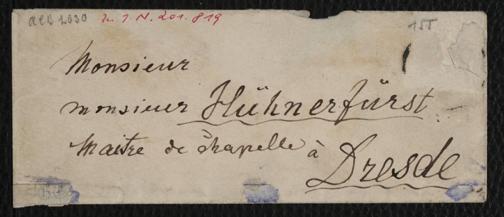 H. I. N. 201.819
Monsieur
monsieur Hühnerfürst
Maitre de chapelle à
Dresde